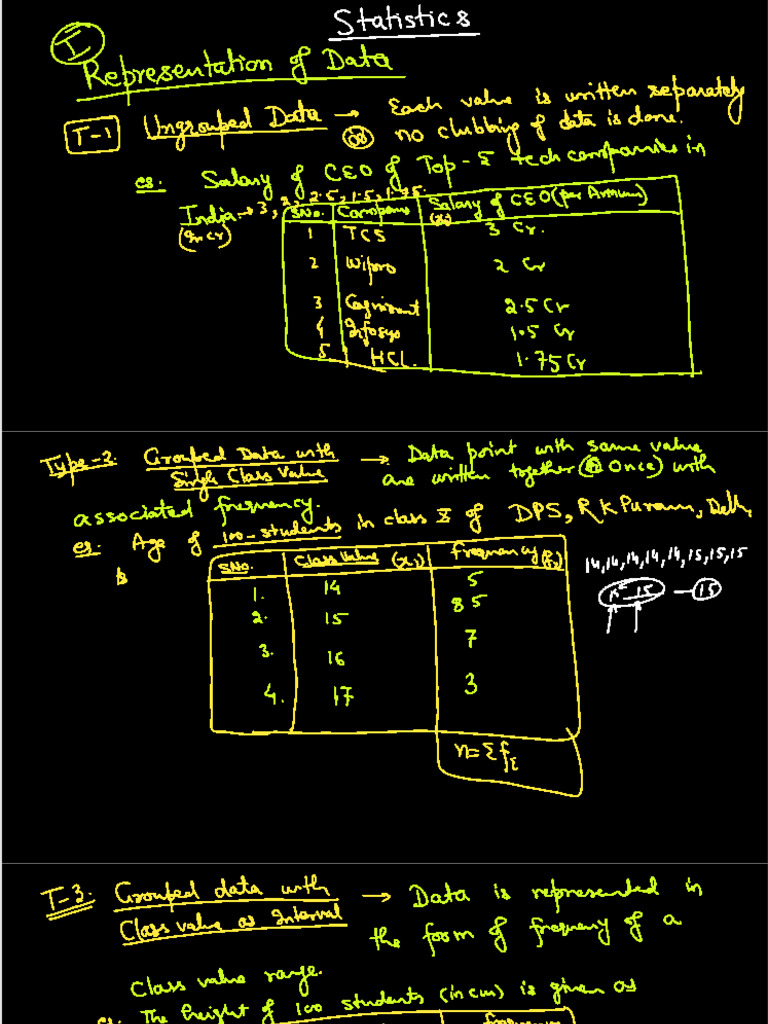 Statistics
I
Representation of Data
T-1 Ungrouped Data → Each value is written separately
(or) no clubbing of data is done.
es. Salary of CEO of Top-5 tech companies in
India → 3, 2, 2.5, 1.5, 1.75.
(in cr)
SNo. Company Salary of CEO (per Annum) (xi)
1 TCS 3 Cr.
2 Wipro 2 Cr
3 Cognizant 2.5 Cr
4 Infosys 1.5 Cr
5 HCL. 1.75 Cr
Type-2. Grouped Data with → Data point with same value
Single Class Value are written together (@ Once) with
associated frequency.
es. Age of 100-students in class X of DPS, R K Puram, Delhi
SNo. Class Value (xi) Frequency (fi)
1. 14 5
2. 15 85
3. 16 7
4. 17 3
n = Σfi
14, 14, 14, 14, 14, 15, 15, 15
15
T-3. Grouped data with → Data is represented in
Class value as Interval the form of frequency of a
Class value range.
es. The height of 100 students (in cm) is given as
frequency